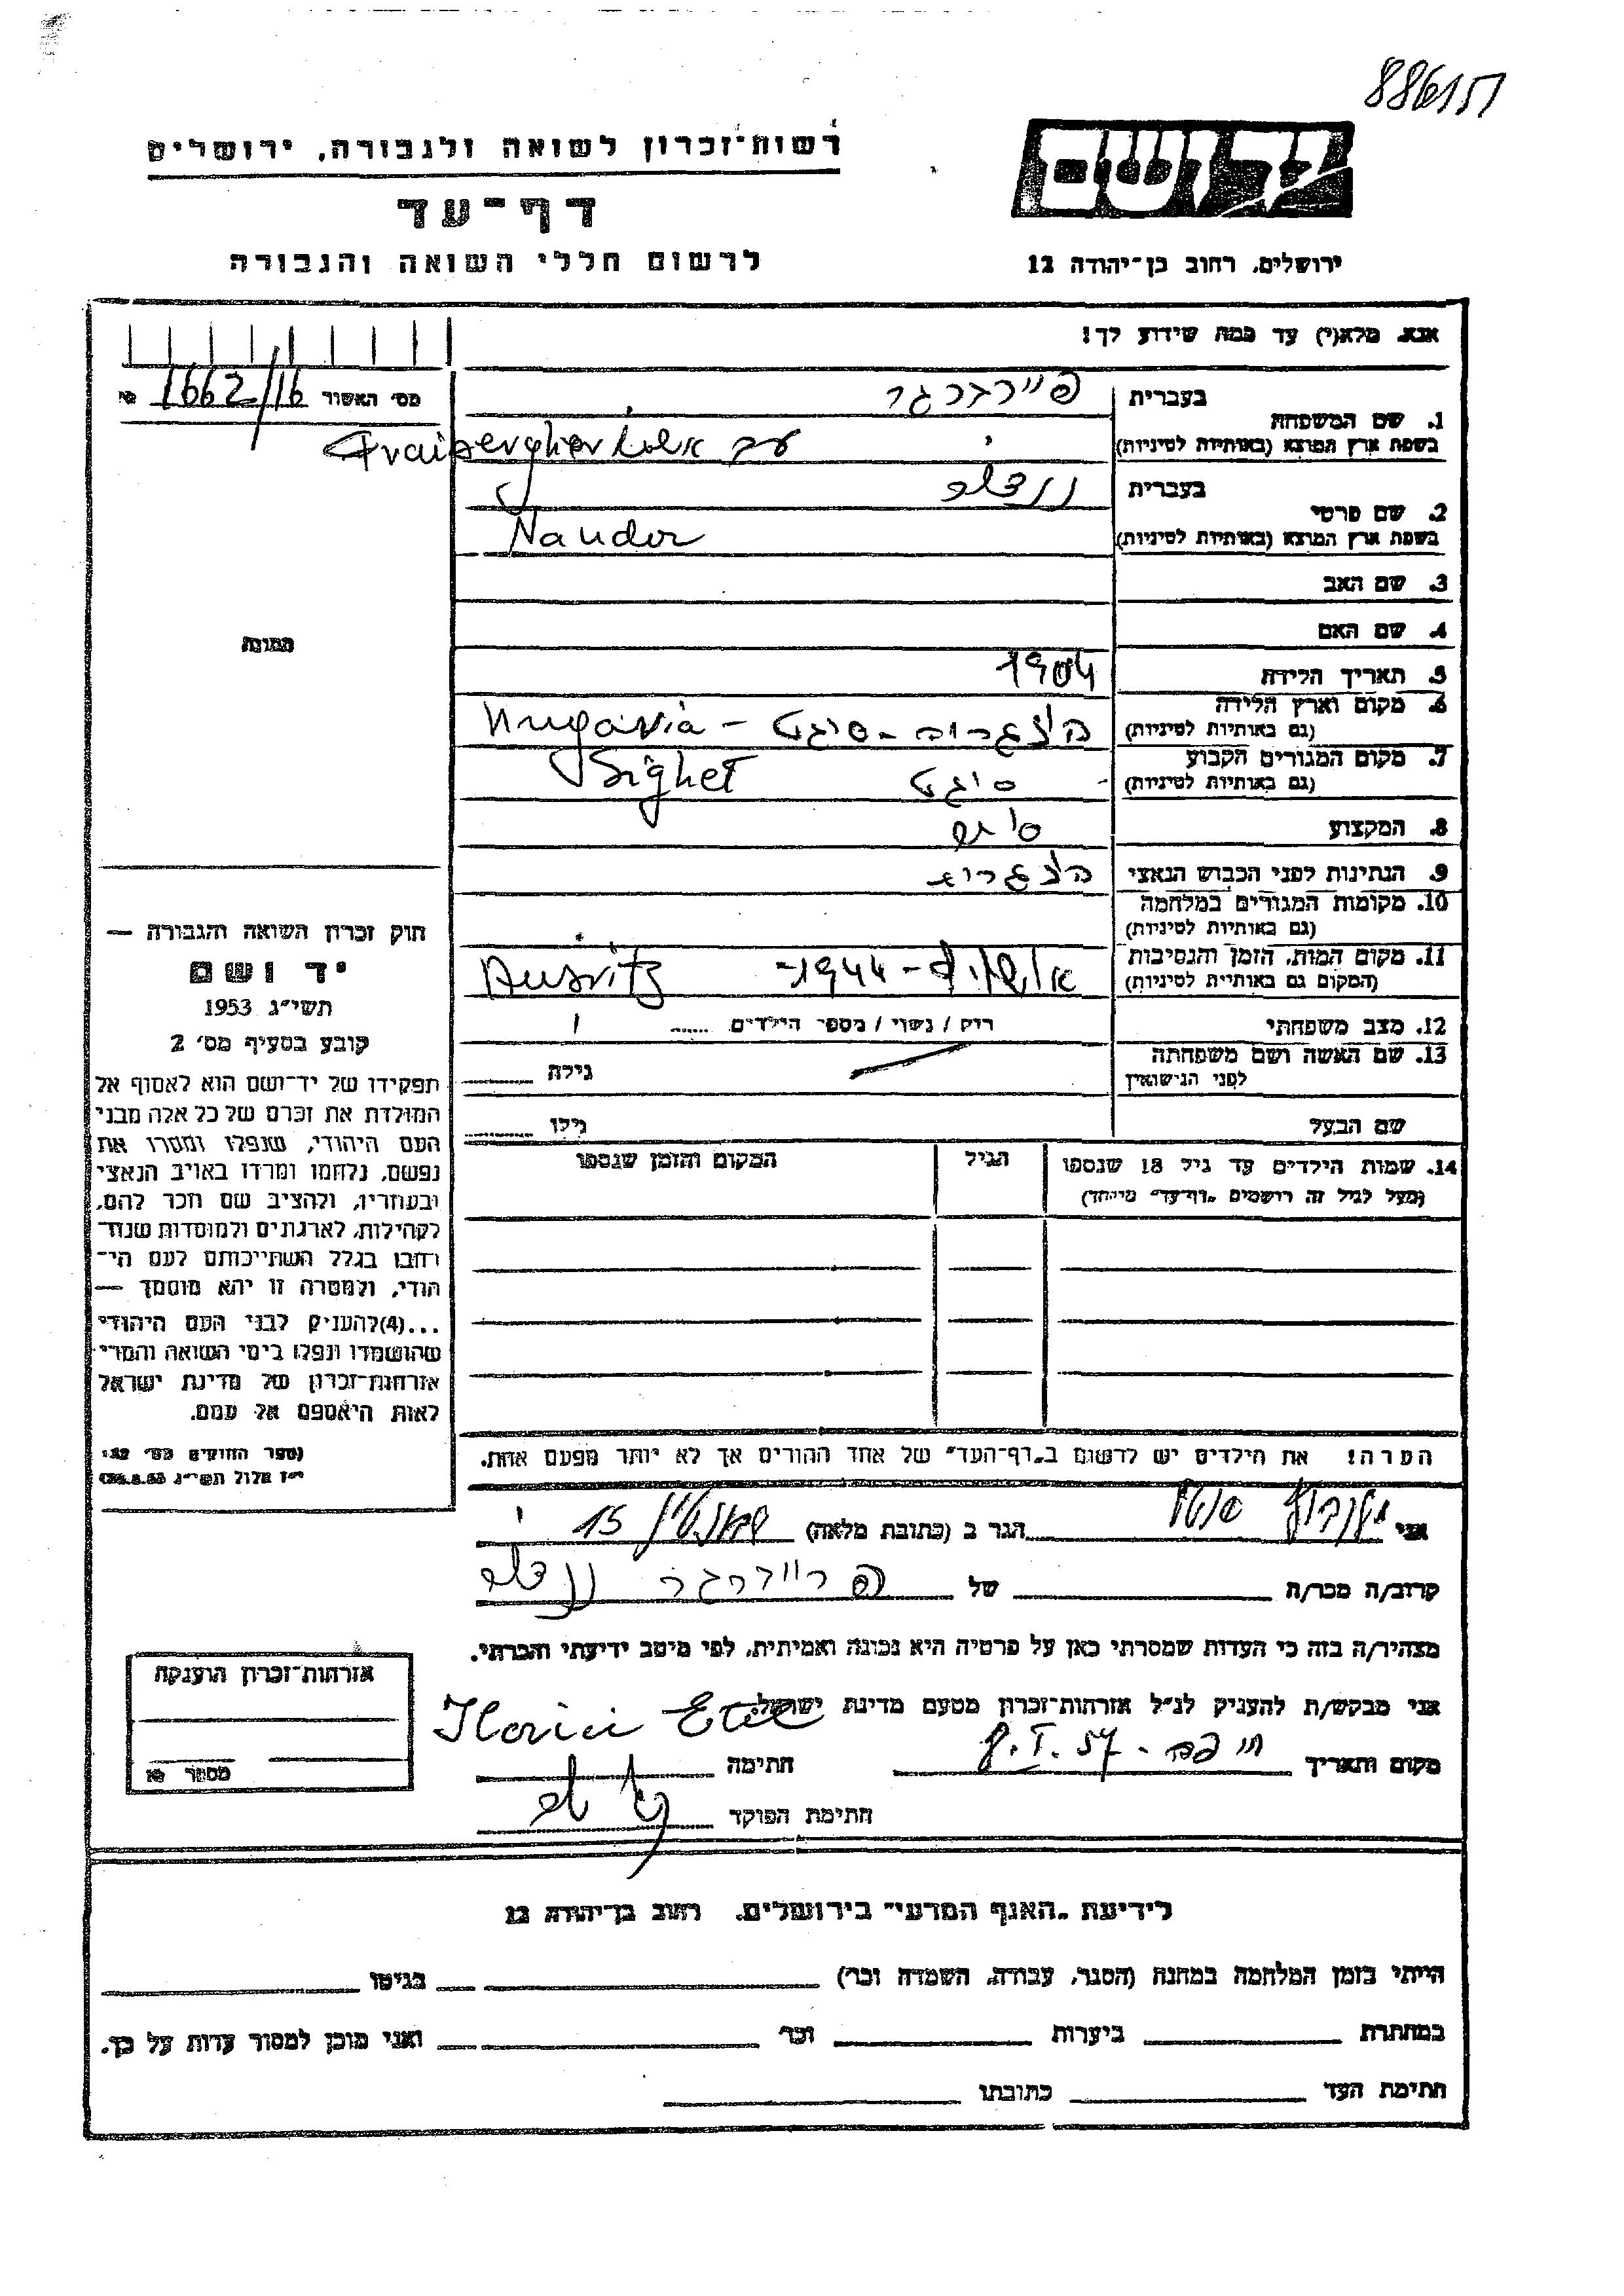 886151
רשות־זכרון לשואה ולגבורה, ירושלים
דף־עד
לרשום חללי השואה והגבורה
ידושם
ירושלים, רחוב בן־יהודה 12
אנא, מלא(י) עד כמה שידוע לך!
מס׳ האשור 1662/16 №
1. שם המשפחה
בעברית
בשפת ארץ המוצא (באותיות לטיניות)
2. שם פרטי
בעברית
בשפת ארץ המוצא (באותיות לטיניות) Nandor
3. שם האב
4. שם האם
5. תאריך הלידה 1904
6. מקום וארץ הלידה הונגריה - סיגט -
(גם באותיות לטיניות)
7. מקום המגורים הקבוע סיגט Sighet
(גם באותיות לטיניות)
8. המקצוע
9. הנתינות לפני הכבוש הנאצי
10. מקומות המגורים במלחמה
(גם באותיות לטיניות)
11. מקום המות, הזמן והנסיבות 1944 - Ausvitz
(המקום גם באותיות לטיניות)
12. מצב משפחתי רווק / נשוי / מספר הילדים ......
13. שם האשה ושם משפחתה
לפני הנישואין גילה
שם הבעל גילו
14. שמות הילדים עד גיל 18 שנספו הגיל המקום והזמן שנספו
(מעל לגיל זה רושמים „דף־עד״ מיוחד)
הערה! את הילדים יש לרשום ב„דף־העד״ של אחד ההורים אך לא יותר מפעם אחת.
תמונה
חוק זכרון השואה והגבורה —
יד ושם
תשי״ג 1953
קובע בסעיף מס׳ 2
תפקידו של יד־ושם הוא לאסוף אל
המולדת את זכרם של כל אלה מבני
העם היהודי, שנפלו ומסרו את
נפשם, נלחמו ומרדו באויב הנאצי
ובעוזריו, ולהציב שם וזכר להם,
לקהילות, לארגונים ולמוסדות שנח־
רחבו בגלל השתייכותם לעם הי־
הודי, ולמטרה זו יהא מוסמך —
...(4) להעניק לבני העם היהודי
שהושמדו ונפלו בימי השואה והמרי
אזרחות־זכרון של מדינת ישראל
לאות היאספם אל עמם.
(ספר החוקים מס׳ 132,
י״ז אלול תשי״ג 28.8.53)
אני
הגר ב (כתובת מלאה) 15
קרוב/ה מכר/ה של
מצהיר/ה בזה כי העדות שמסרתי כאן על פרטיה היא נכונה ואמיתית, לפי מיטב ידיעתי והכרתי.
אני מבקש/ת להעניק לנ״ל אזרחות־זכרון מטעם מדינת ישראל.
מקום ותאריך חיפה - 8.I.57 חתימה
חתימת הפוקד
אזרחות־זכרון הוענקה
מספר №
לידיעת „האגף המדעי״ בירושלים, רחוב בן־יהודה 12
הייתי בזמן המלחמה במחנה (הסגר, עבודה, השמדה וכו׳) בגיטו
במחתרת ביערות וכו׳ ואני מוכן למסור עדות על כך.
חתימת העד כתובתו